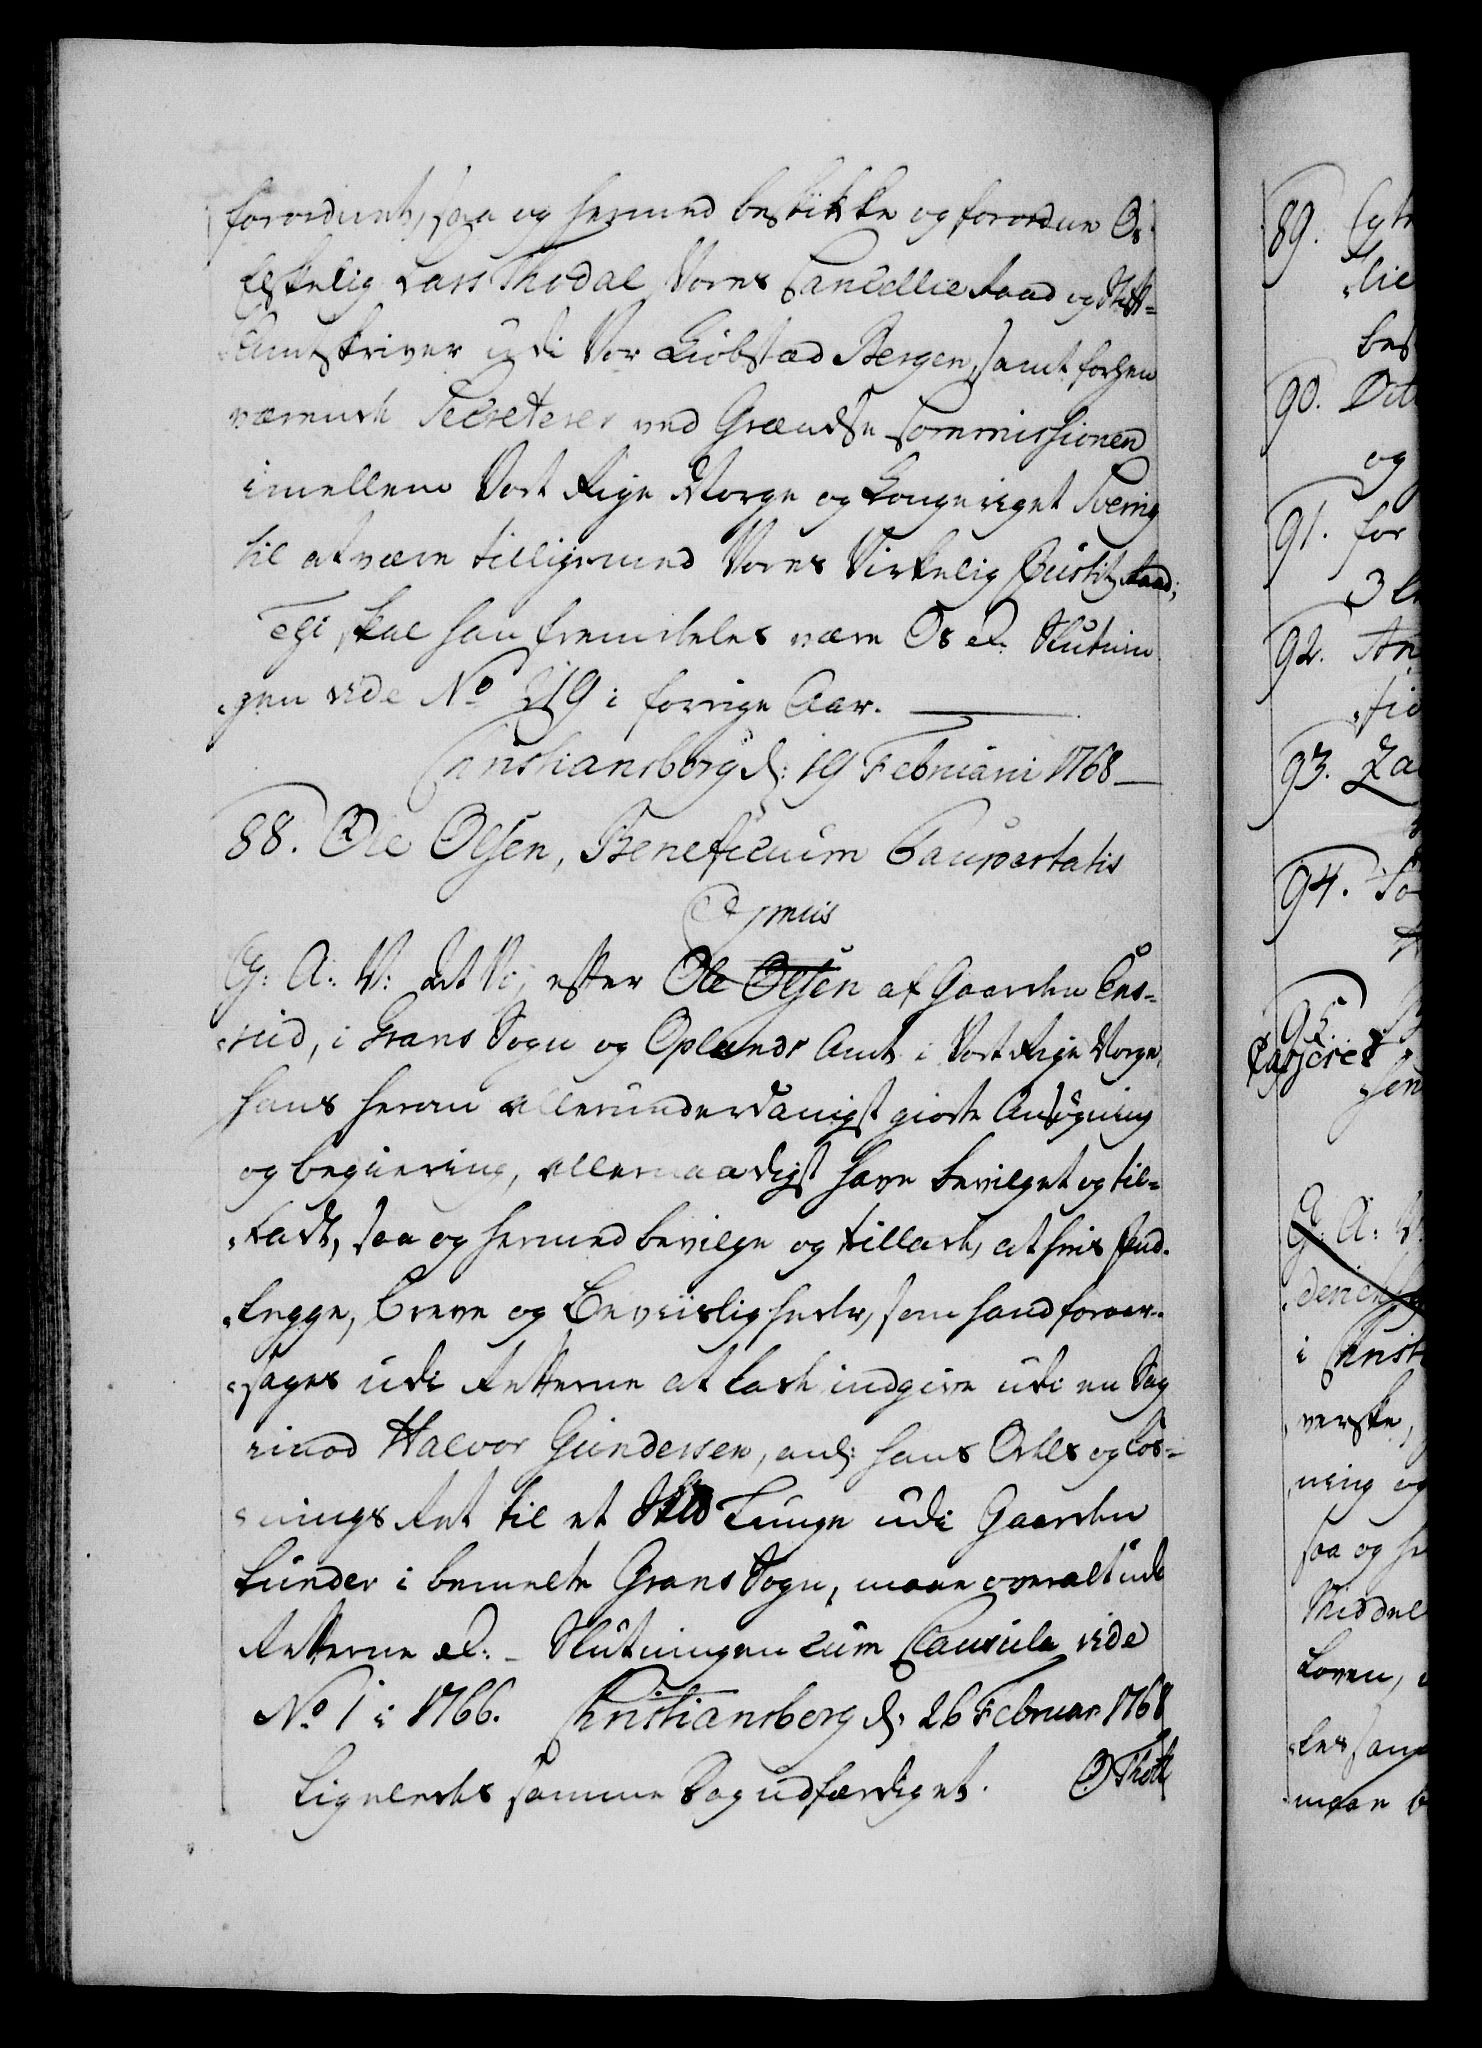 forordnet, saa og hermed beskikke og forordne Os
Elskelig Lars Thodal Vores Cancellie Raad og Stift-
Amtskriver udi Vor Kiøbstad Bergen, samt forhen
værende Secreterer ved Grændse Commissionen
imellem Vort Rige Norge og Kongeriget Sverrig
til at være tilligemed Vores Virkelig Justitz Raad;
Thi skal han fremdeles være Os etc. Slutnin-
gen vide No 219 i forrige Aar.
Christiansborg d: 19 Februarii 1768
88. Ole Olsen, Beneficium Paupertatis
G: A: V: At Vi, efter Ole Olsen af Gaarden
rud, i Grans Sogn og Oplands Amt i Vort Rige Norge,
hans herom allerunderdanigst giorte Ansøgning
og begiering, allernaadigst have bevilget og til-
ladt, saa og hermed bevilge og tillade, at hvis Ind-
legge, Breve og Beviisligheder, som hand foraar-
sages udi Retterne at lade indgive udi en Sag
imod Halvor Gundersen, ang: hans Odels og Løs-
nings Ret til et Skld Tunge udi Gaarden
Lunder i bemelte Grans Sogn, maae overalt udi
Retterne etc: - Slutningen cum Clausula vide
No 1 i 1766. Christiansborg d. 26 Februar 1768
Ligeledes samme Dag udfærdiget. O Thott
89.
90.
og
91. for
92.
93.
94.
95.
G. A: V.
i Christ
verske,
ning og
saa og
Middel
Loven,
maae b